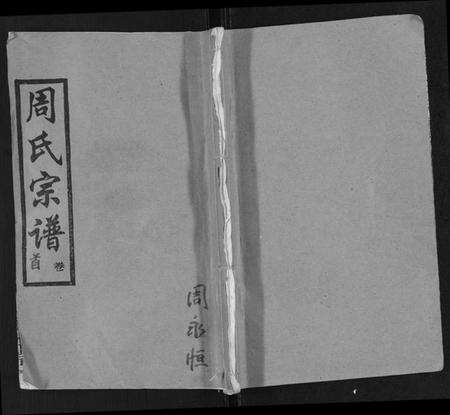 周氏宗谱
卷首
周永恒